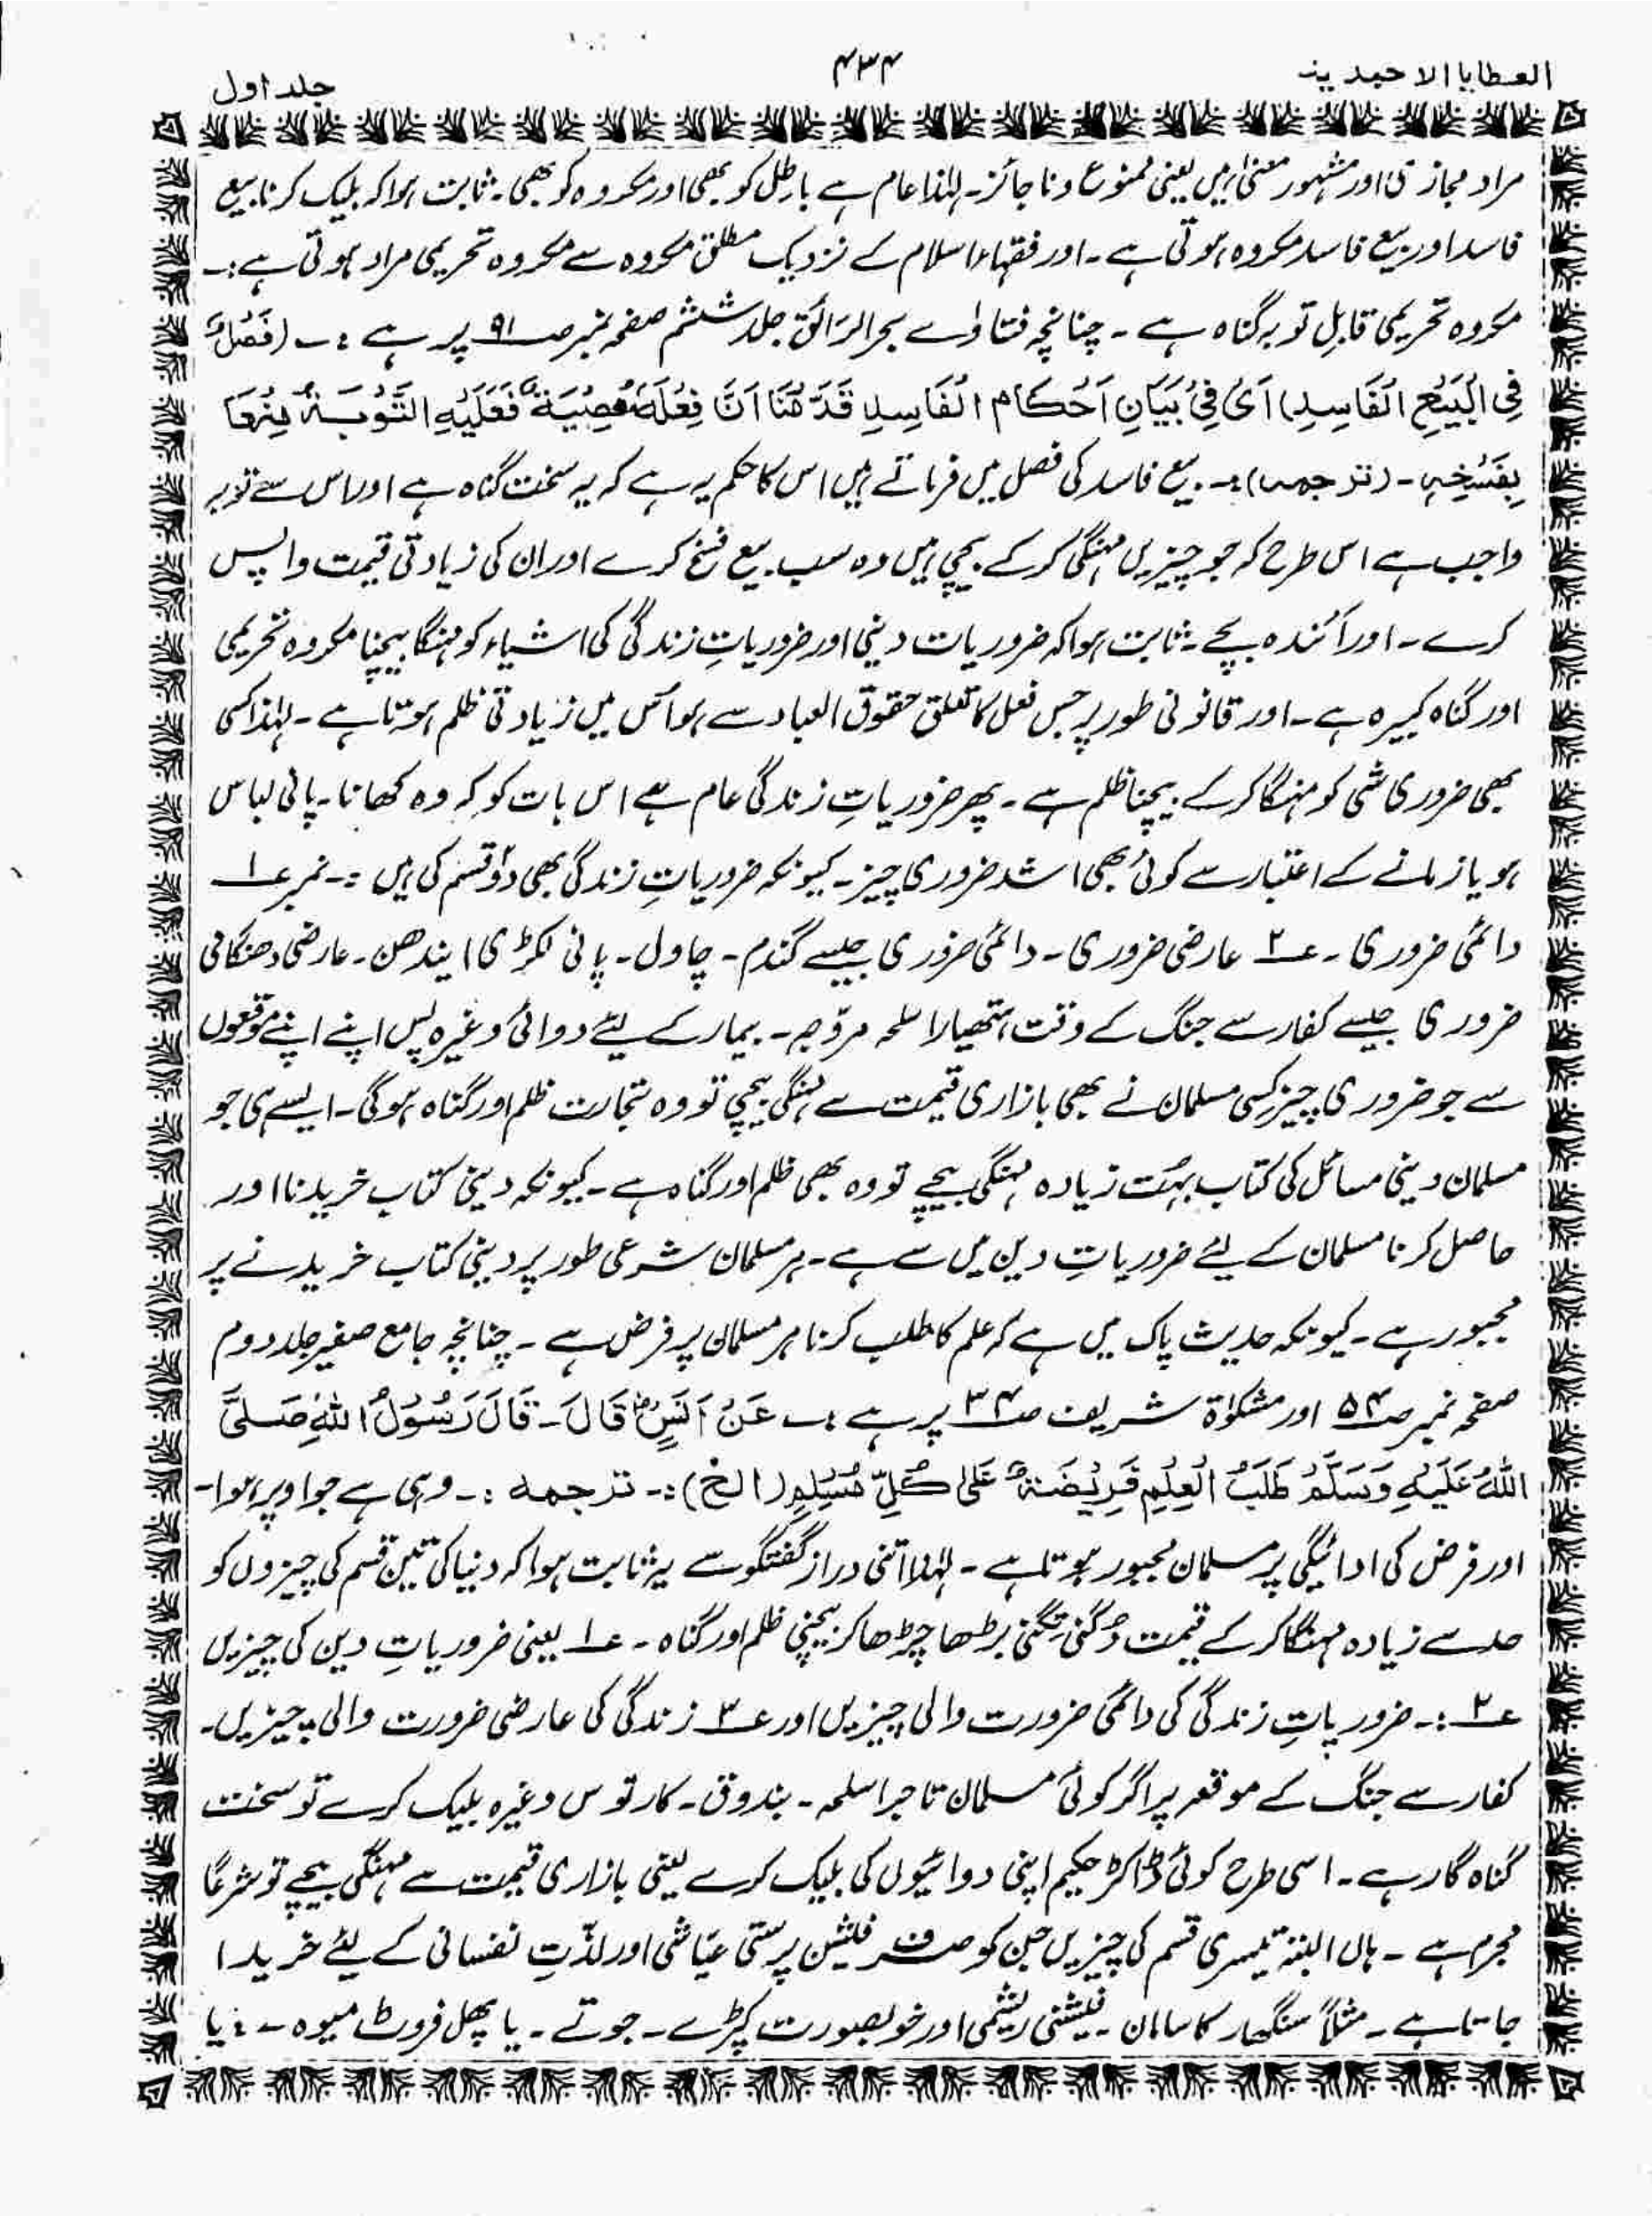 العطایا الاحمدیہ
۴۳۴
جلد اول
مراد مجازی اور مشہور معنیٰ ہیں یعنی ممنوع و ناجائز۔ لہٰذا عام ہے باطل کو بھی اور مکروہ کو بھی۔ ثابت ہوا کہ بلیک کرنا بیع
فاسد اور بیع فاسد مکروہ ہوتی ہے۔ اور فقہاءِ اسلام کے نزدیک مطلق مکروہ سے مکروہ تحریمی مراد ہوتی ہے:۔
مکروہ تحریمی قابلِ توبہ گناہ ہے۔ چنانچہ فتاواے بحر الرائق جلد ششم صفحہ نمبر صـ۹۱ پر ہے :۔ (فَصْلٌ
فِی الْبَیْعِ الْفَاسِدِ) اَیْ فِیْ بَیَانِ اَحْکَامِ الْفَاسِدِ قَدَّمْنَا اَنَّ فِعْلَهٗ مَعْصِیَةٌ فَعَلَیْهِ التَّوْبَةُ مِنْهَا
بِفَسْخِهٖ۔ (ترجمہ):۔ بیع فاسد کی فصل میں فرماتے ہیں اس کا حکم یہ ہے کہ یہ سخت گناہ ہے اور اس سے توبہ
واجب ہے اس طرح کہ جو چیزیں مہنگی کر کے بیچی ہیں وہ سب بیع فسخ کرے اور ان کی زیادتی قیمت واپس
کرے۔ اور آئندہ بچے۔ ثابت ہوا کہ ضروریات دینی اور ضروریاتِ زندگی کی اشیاء کو مہنگا بیچنا مکروہ تحریمی
اور گناہ کبیرہ ہے۔ اور قانونی طور پر جس فعل کا تعلق حقوق العباد سے ہو اُس میں زیادتی ظلم ہوتا ہے۔ لہٰذا کسی
بھی ضروری شی کو مہنگا کر کے بیچنا ظلم ہے۔ پھر ضروریاتِ زندگی عام ہے اس بات کو کہ وہ کھانا۔ پانی لباس
ہو یا زمانے کے اعتبار سے کوئی بھی اشد ضروری چیز۔ کیونکہ ضروریاتِ زندگی بھی دو قسم کی ہیں :۔ نمبر ۱
دائمی ضروری۔ ۲ عارضی ضروری۔ دائمی ضروری جیسے گندم۔ چاول۔ پانی لکڑی ایندھن۔ عارضی و ہنگامی
ضروری جیسے کفار سے جنگ کے وقت ہتھیار اسلحہ مروّجہ۔ بیمار کے لیئے دوائی وغیرہ پس اپنے اپنے موقعوں
سے جو ضروری چیز کسی مسلمان نے بھی بازاری قیمت سے مہنگی بیچی تو وہ تجارت ظلم اور گناہ ہوگی۔ ایسے ہی جو
مسلمان دینی مسائل کی کتاب بہت زیادہ مہنگی بیچے تو وہ بھی ظلم اور گناہ ہے۔ کیونکہ دینی کتاب خریدنا اور
حاصل کرنا مسلمان کے لئے ضروریاتِ دین میں سے ہے۔ ہر مسلمان شرعی طور پر دینی کتاب خریدنے پر
مجبور ہے۔ کیونکہ حدیث پاک میں ہے کہ علم کا طلب کرنا ہر مسلمان پر فرض ہے۔ چنانچہ جامع صغیر جلد دوم
صفحہ نمبر صـ۵۴ اور مشکوٰۃ شریف صـ۳۴ پر ہے :۔ عَنْ اَنَسٍؓ قَالَ۔ قَالَ رَسُوْلُ اللهِ صَلَّی
اللهُ عَلَیْهِ وَسَلَّمَ طَلَبُ الْعِلْمِ فَرِیْضَةٌ عَلٰی کُلِّ مُسْلِمٍ (الخ) :۔ ترجمہ :۔ وہی ہے جو اوپر ہوا۔
اور فرض کی ادائیگی پر مسلمان مجبور ہوتا ہے۔ لہٰذا اتنی دراز گفتگو سے یہ ثابت ہوا کہ دنیا کی تین قسم کی چیزوں کو
حد سے زیادہ مہنگا کر کے قیمت دُگنی تِگنی بڑھا چڑھا کر بیچنی ظلم اور گناہ۔ ۱ یعنی ضروریاتِ دین کی چیزیں
۲ :۔ ضروریاتِ زندگی کی دائمی ضرورت والی چیزیں اور ۳ زندگی کی عارضی ضرورت والی چیزیں۔
کفار سے جنگ کے موقعہ پر اگر کوئی مسلمان تاجر اسلحہ۔ بندوق۔ کارتوس وغیرہ بلیک کرے تو سخت
گناہ گار ہے۔ اسی طرح کوئی ڈاکٹر حکیم اپنی دوائیوں کی بلیک کرے یعنی بازاری قیمت سے مہنگی بیچے تو شرعًا
مجرم ہے۔ ہاں البتہ تیسری قسم کی چیزیں جن کو صرف فیشن پرستی عیّاشی اور لذّتِ نفسانی کے لئے خریدا
جاتا ہے۔ مثلاً سنگھار کا سامان۔ فیشنی ریشمی اور خوبصورت کپڑے۔ جوتے۔ یا پھل فروٹ میوہ۔ یا